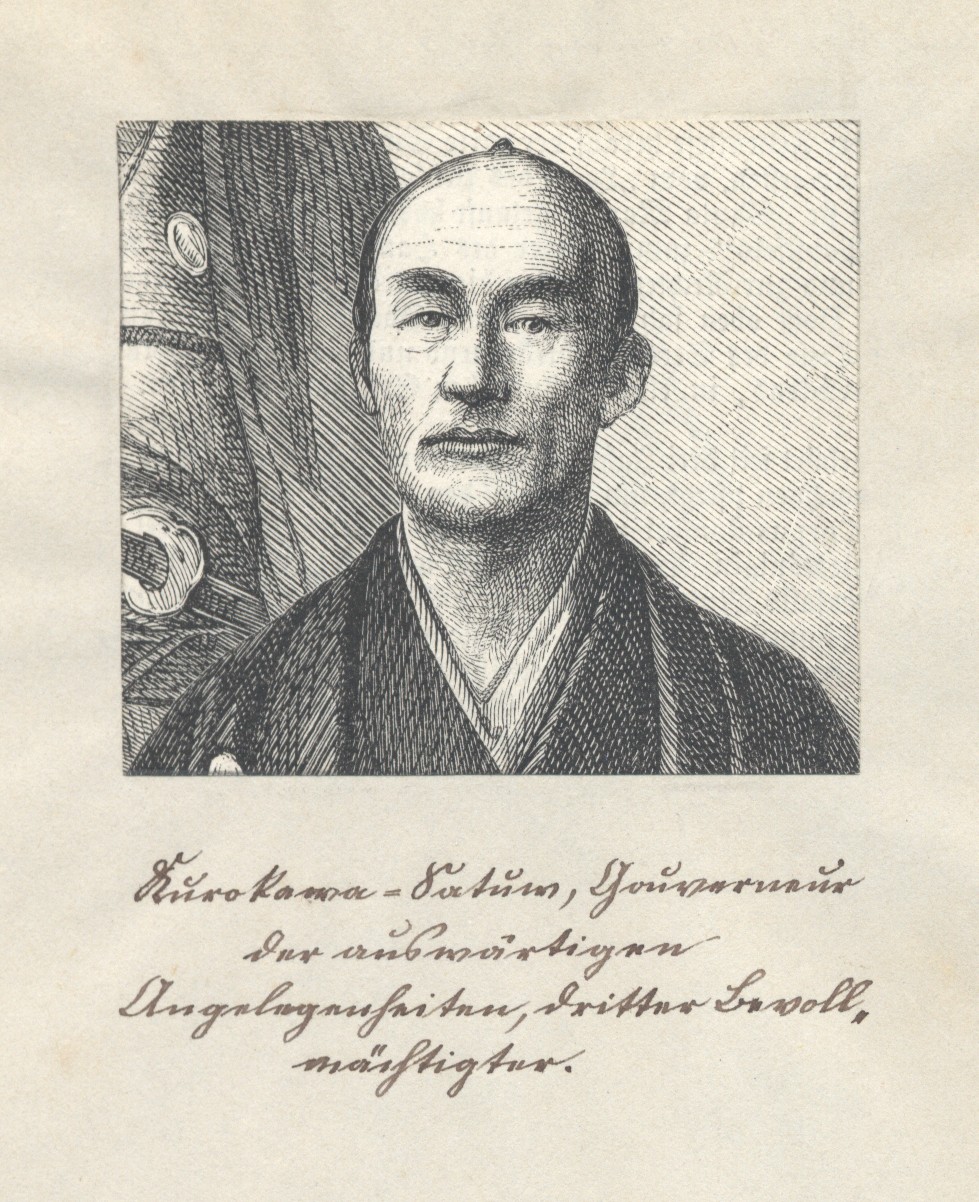 Kurokawa-Satuw, Gouverneur
der auswärtigen
Angelegenheiten, dritter Bevoll„
mächtigter.